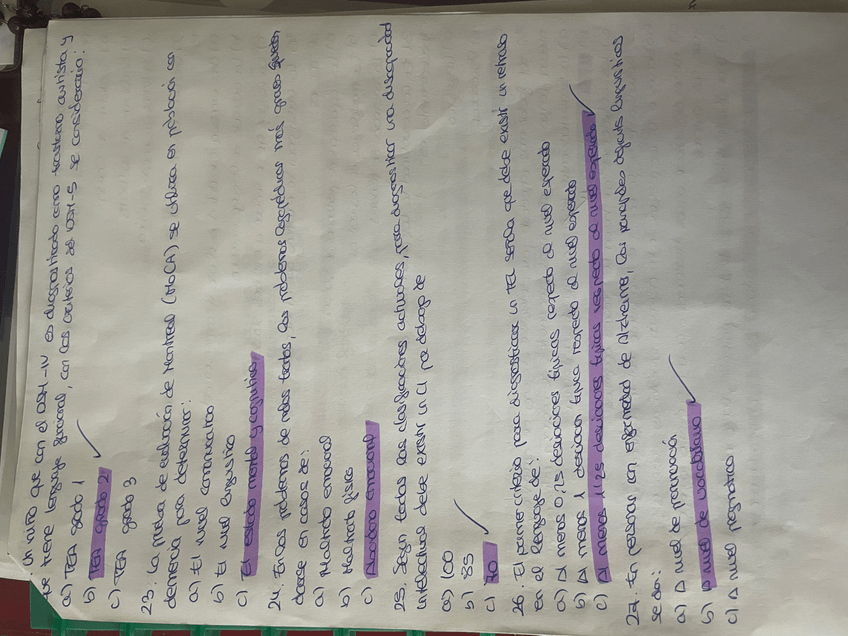 Un niño que con el DSM-IV es diagnosticado como trastorno autista y
que tiene lenguaje funcional, con los criterios del DSM-5 se consideraría:
a) TEA grado 1
b) TEA grado 2
c) TEA grado 3
23. La prueba de evaluación de Montreal (MoCA) se utiliza en población con
demencia para determinar:
a) El nivel comunicativo
b) El nivel lingüístico
c) El estado mental y cognitivo
24. En los problemas de malos tratos, los problemas logopédicos más graves pueden
darse en casos de:
a) Maltrato emocional
b) Maltrato físico
c) Abandono emocional
25. Según todas las clasificaciones actuales, para diagnosticar una discapacidad
intelectual debe existir un CI por debajo de
a) 100
b) 85
c) 70
26. El primer criterio para diagnosticar un TEL señala que debe existir un retraso
en el lenguaje de:
a) Al menos 0,75 desviaciones típicas respecto al nivel esperado
b) Al menos 1 desviación típica respecto al nivel esperado
c) Al menos 1'25 desviaciones típicas respecto al nivel esperado
27. En personas con enfermedad de Alzheimer, los principales déficits lingüísticos
se dan:
a) A nivel de pronunciación
b) A nivel de vocabulario
c) A nivel pragmático